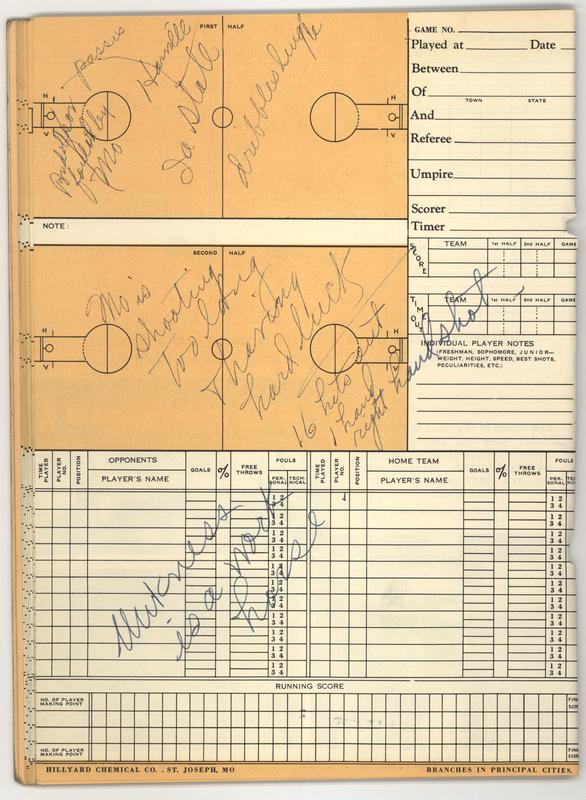 FIRST HALF
passes
Ia State
Mo
dribbles
H
V
H
V
NOTE:
SECOND HALF
Mo is
shooting
too long
having
hard luck
16 hits out
1 hand
right hand shot
H
V
H
V
GAME NO.
Played at Date
Between
Of
TOWN STATE
And
Referee
Umpire
Scorer
Timer
SCORE TEAM 1st HALF 2nd HALF GAME
TIME OUT TEAM 1st HALF 2nd HALF GAME
INDIVIDUAL PLAYER NOTES
(FRESHMAN, SOPHOMORE, JUNIOR—
WEIGHT, HEIGHT, SPEED, BEST SHOTS,
PECULIARITIES, ETC.)
TIME PLAYED PLAYER NO. POSITION OPPONENTS PLAYER'S NAME GOALS % FREE THROWS FOULS PERSONAL TECHNICAL
TIME PLAYED PLAYER NO. POSITION HOME TEAM PLAYER'S NAME GOALS % FREE THROWS FOULS
1 2 1 2
3 4 3 4
1 2 1 2
3 4 3 4
1 2 1 2
3 4 3 4
1 2 1 2
3 4 3 4
1 2 1 2
3 4 3 4
1 2 1 2
3 4 3 4
1 2 1 2
3 4 3 4
1 2 1 2
3 4 3 4
1 2 1 2
3 4 3 4
1 2 1 2
3 4 3 4
1 2 1 2
3 4 3 4
is a work
horse
RUNNING SCORE
NO. OF PLAYER
MAKING POINT
NO. OF PLAYER
MAKING POINT
HILLYARD CHEMICAL CO. . ST. JOSEPH, MO. BRANCHES IN PRINCIPAL CITIES.